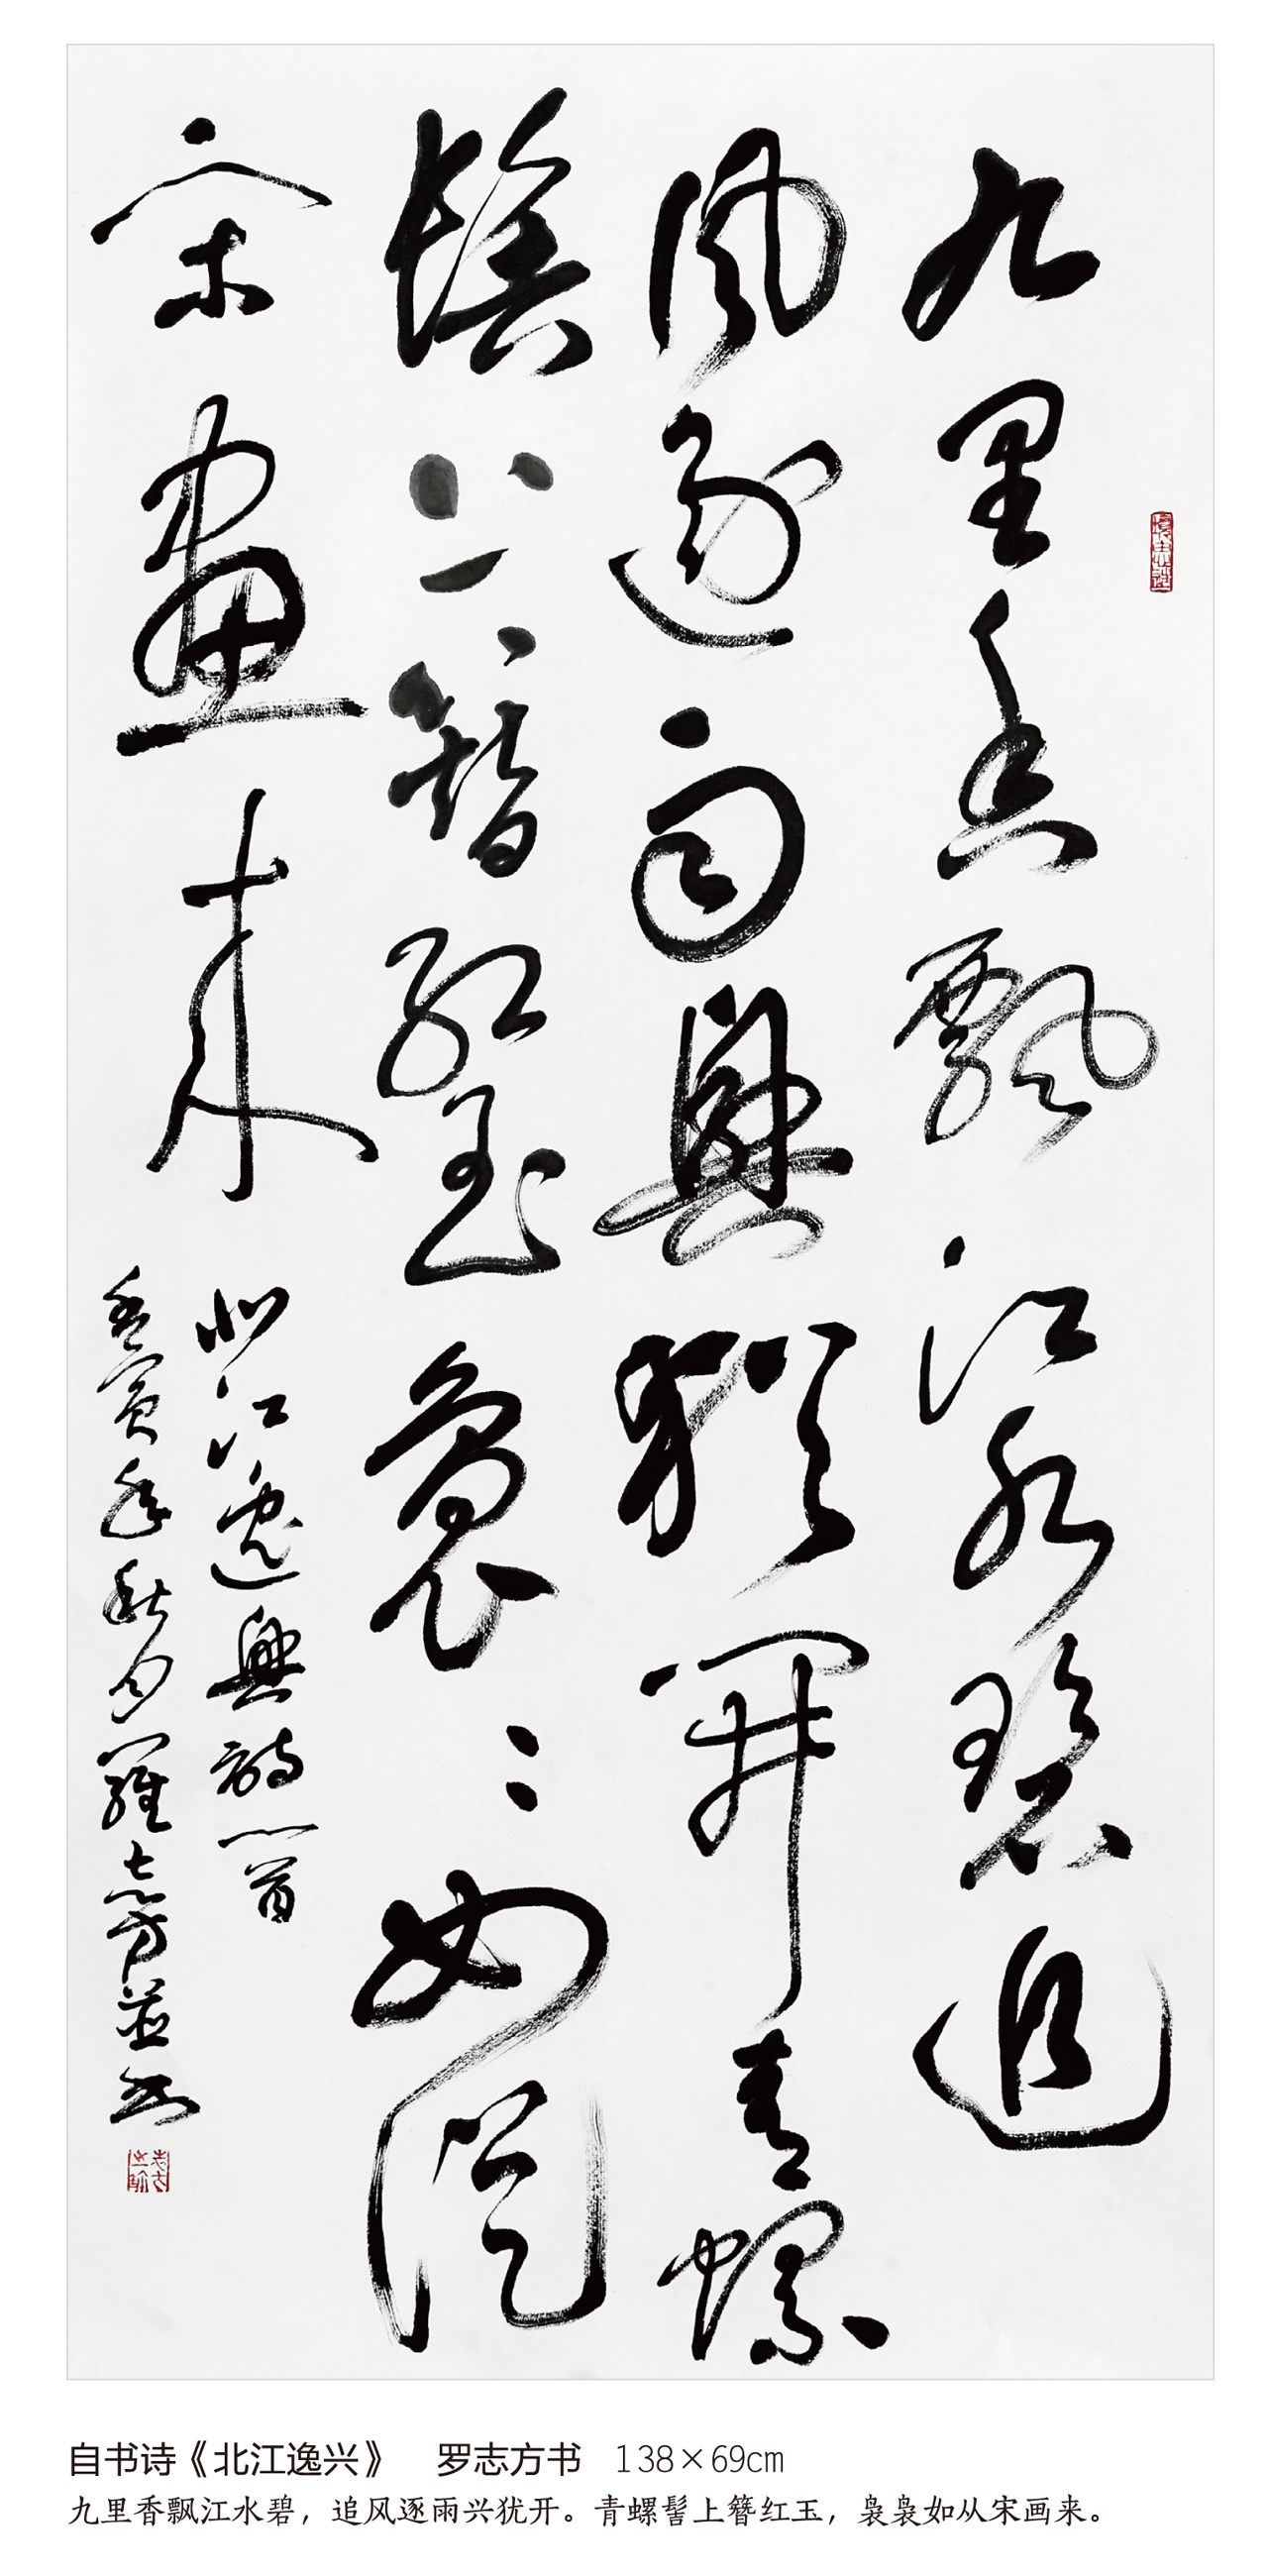 九里香飘江水碧追
风逐雨興猶開青螺
髻上簪红玉裊〻如從
宋畫来
北江逸興詩一首
壬寅年秋月羅志方並书
自书诗《北江逸兴》 罗志方书 138×69cm
九里香飘江水碧，追风逐雨兴犹开。青螺髻上簪红玉，袅袅如从宋画来。